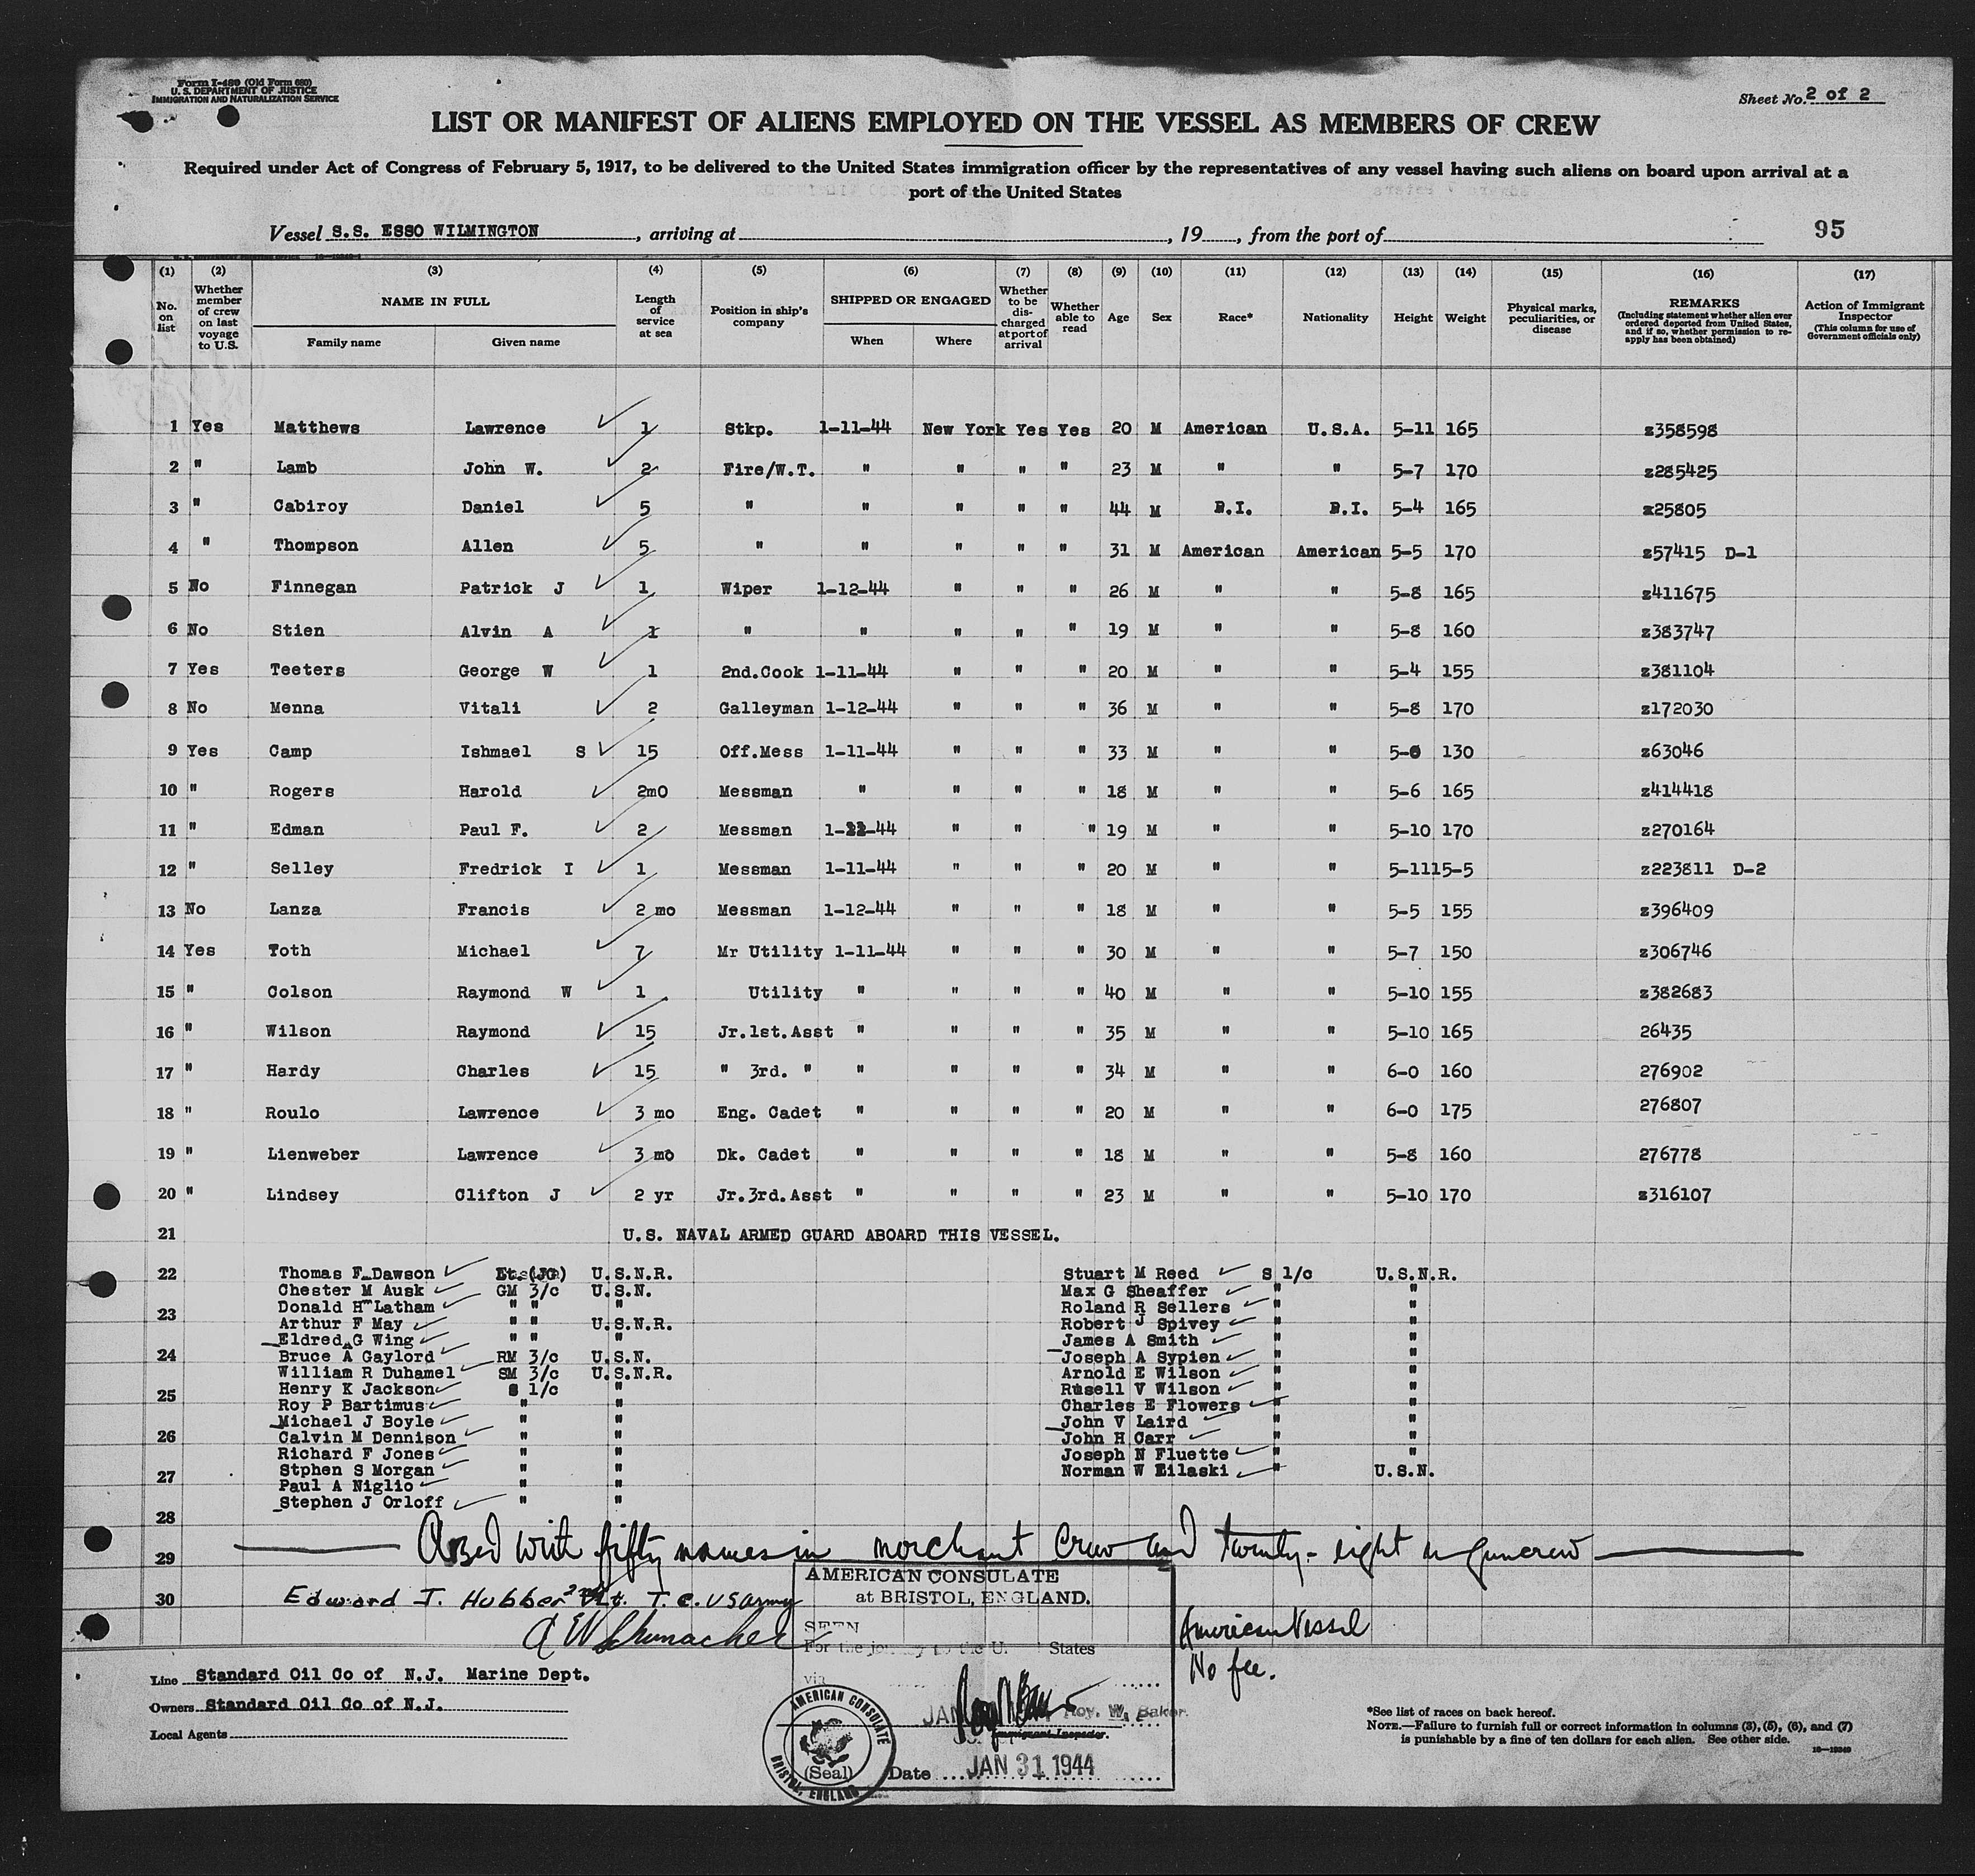 Form I-489 (Old Form 680)
U. S. DEPARTMENT OF JUSTICE
IMMIGRATION AND NATURALIZATION SERVICE
Sheet No. 2 of 2
LIST OR MANIFEST OF ALIENS EMPLOYED ON THE VESSEL AS MEMBERS OF CREW
Required under Act of Congress of February 5, 1917, to be delivered to the United States immigration officer by the representatives of any vessel having such aliens on board upon arrival at a
port of the United States
Vessel S.S. ESSO WILMINGTON, arriving at , 19 , from the port of 95
(1) (2) (3) (4) (5) (6) (7) (8) (9) (10) (11) (12) (13) (14) (15) (16) (17)
No. on list Whether member of crew on last voyage to U.S. NAME IN FULL Family name Given name Length of service at sea Position in ship's company SHIPPED OR ENGAGED When Where Whether to be discharged at port of arrival Whether able to read Age Sex Race* Nationality Height Weight Physical marks, peculiarities, or disease REMARKS (Including statement whether alien ever ordered deported from United States, and if so, whether permission to re-apply has been obtained) Action of Immigrant Inspector (This column for use of Government officials only)
1 Yes Matthews Lawrence 1 Stkp. 1-11-44 New York Yes Yes 20 M American U.S.A. 5-11 165 z358598
2 " Lamb John W. 2 Fire/W.T. " " " " 23 M " " 5-7 170 z285425
3 " Cabiroy Daniel 5 " " " " " 44 M P.I. P.I. 5-4 165 z25805
4 " Thompson Allen 5 " " " " " 31 M American American 5-5 170 z57415 D-1
5 No Finnegan Patrick J 1 Wiper 1-12-44 " " " 26 M " " 5-8 165 z411675
6 No Stien Alvin A 1 " " " " " 19 M " " 5-8 160 z383747
7 Yes Teeters George W 1 2nd.Cook 1-11-44 " " " 20 M " " 5-4 155 z381104
8 No Menna Vitali 2 Galleyman 1-12-44 " " " 36 M " " 5-8 170 z172030
9 Yes Camp Ishmael S 15 Off.Mess 1-11-44 " " " 33 M " " 5- 130 z63046
10 " Rogers Harold 2mO Messman " " " " 18 M " " 5-6 165 z414418
11 " Edman Paul F. 2 Messman 1-22-44 " " " 19 M " " 5-10 170 z270164
12 " Selley Fredrick I 1 Messman 1-11-44 " " " 20 M " " 5-1115-5 z223811 D-2
13 No Lanza Francis 2 mo Messman 1-12-44 " " " 18 M " " 5-5 155 z396409
14 Yes Toth Michael 7 Mr Utility 1-11-44 " " " 30 M " " 5-7 150 z306746
15 " Colson Raymond W 1 Utility " " " " 40 M " " 5-10 155 z382683
16 " Wilson Raymond 15 Jr.1st.Asst " " " " 35 M " " 5-10 165 26435
17 " Hardy Charles 15 " 3rd. " " " " " 34 M " " 6-0 160 276902
18 " Roulo Lawrence 3 mo Eng. Cadet " " " " 20 M " " 6-0 175 276807
19 " Lienweber Lawrence 3 mo Dk. Cadet " " " " 18 M " " 5-8 160 276778
20 " Lindsey Clifton J 2 yr Jr.3rd.Asst " " " " 23 M " " 5-10 170 z316107
21 U.S. NAVAL ARMED GUARD ABOARD THIS VESSEL.
22 Thomas F Dawson Lt.(JG) U.S.N.R. Stuart M Reed S 1/c U.S.N.R.
Chester M Ausk GM 3/c U.S.N. Max G Sheaffer " "
23 Donald H Latham " " " Roland R Sellers " "
Arthur F May " " U.S.N.R. Robert J Spivey " "
Eldred G Wing " " " James A Smith " "
24 Bruce A Gaylord RM 3/c U.S.N. Joseph A Sypien " "
William R Duhamel SM 3/c U.S.N.R. Arnold E Wilson " "
25 Henry K Jackson S 1/c " Rusell V Wilson " "
Roy P Bartimus " " Charles E Flowers " "
Michael J Boyle " " John V Laird " "
26 Calvin M Dennison " " John H Carr " "
Richard F Jones " " Joseph N Fluette " "
27 Stphen S Morgan " " Norman W Zilaski " U.S.N.
Paul A Niglio " "
Stephen J Orloff " "
28
29 Closed with fifty names in merchant Crew and twenty-eight in guncrew
30 Edward J. Hubber 2nd Lt. T.C. US Army
A W Schumacher
AMERICAN CONSULATE
at BRISTOL, ENGLAND.
SEEN
For the journey to the U. States
via
American Vessel
No fee.
Roy. W. Baker
Immigrant Inspector.
AMERICAN CONSULATE
BRISTOL, ENGLAND
(Seal)
Date JAN 31 1944
Line Standard Oil Co of N.J. Marine Dept.
Owners Standard Oil Co of N.J.
Local Agents
*See list of races on back hereof.
NOTE.—Failure to furnish full or correct information in columns (3), (5), (6), and (7)
is punishable by a fine of ten dollars for each alien. See other side.
16—19349